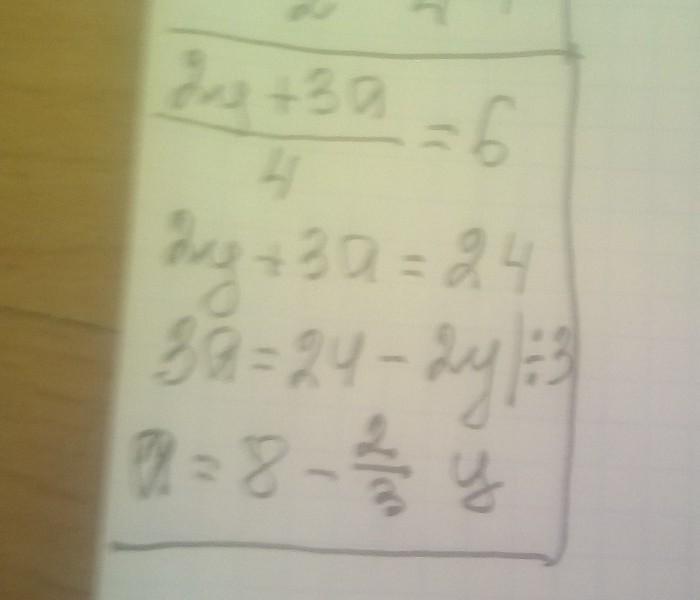 2y + 3a
4
= 6
2y + 3a = 24
3a = 24 - 2y | ÷3
a = 8 - 2/3 y